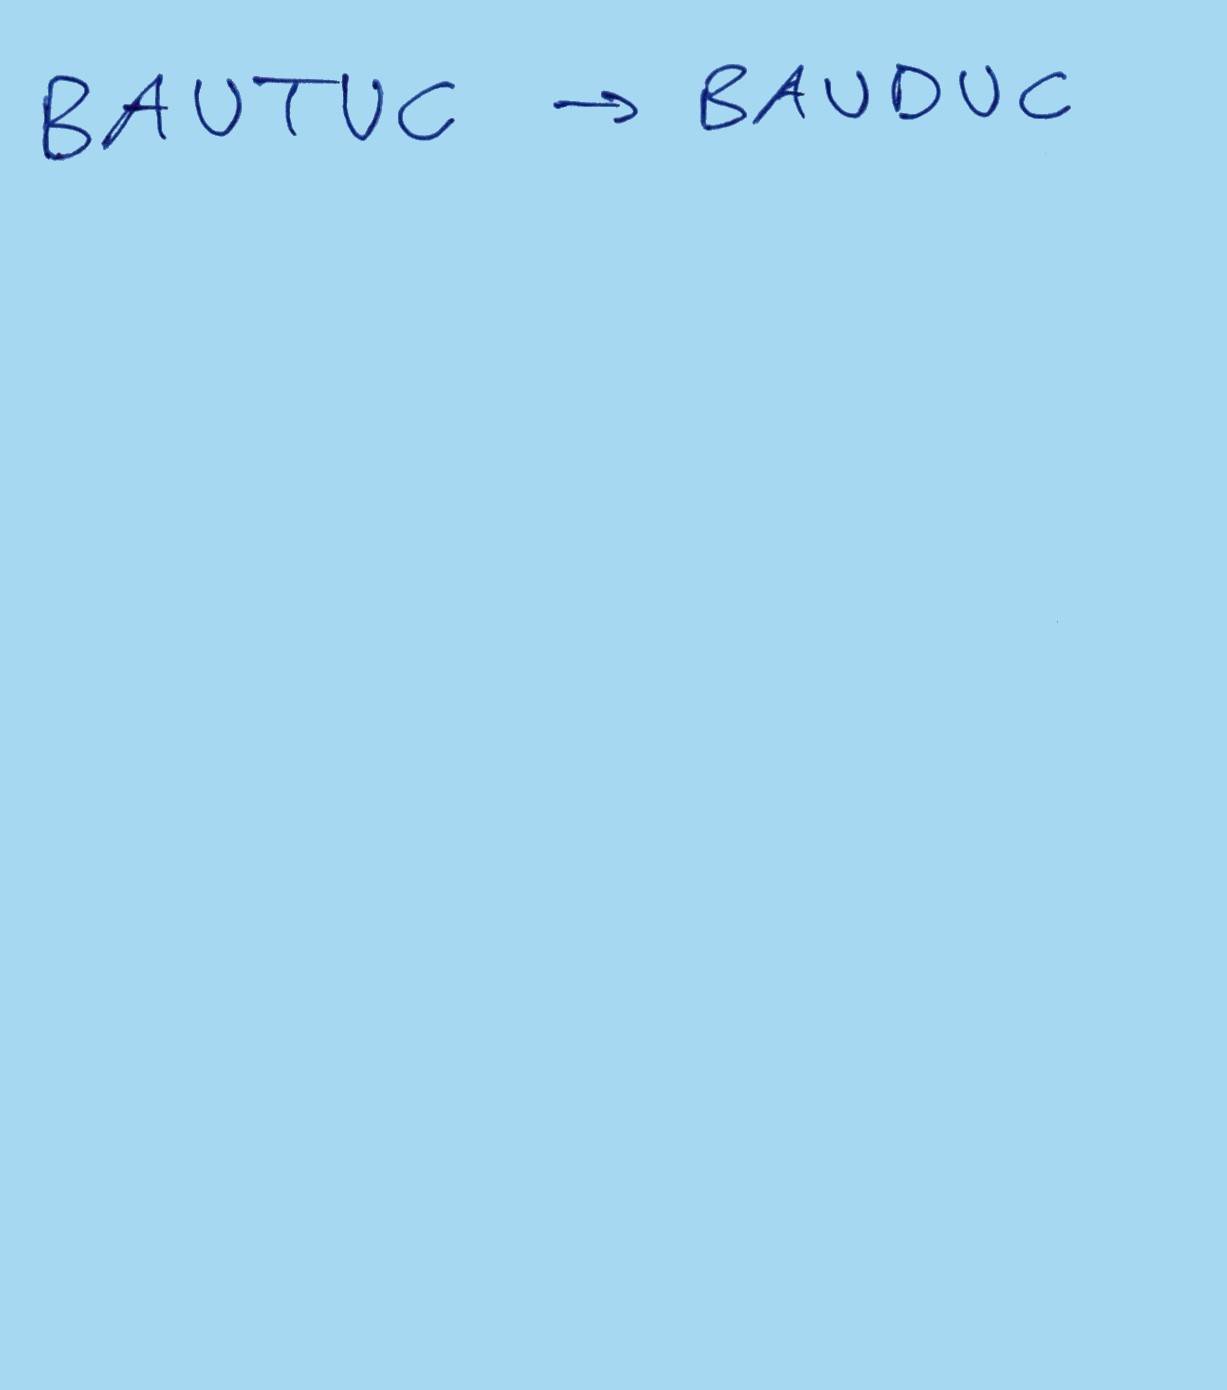 BAUTUC → BAUDUC